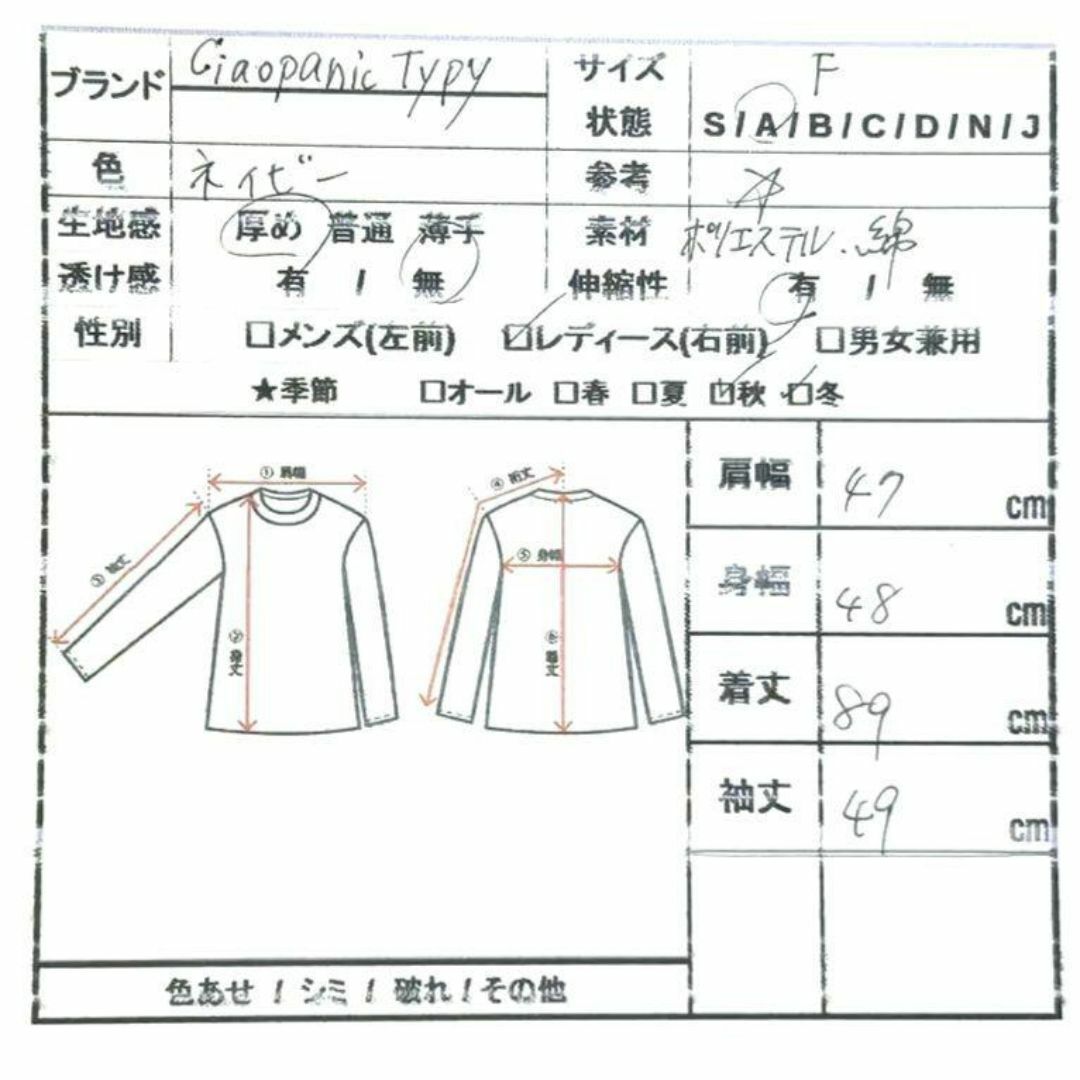 ブランド Ciaopanic Typy サイズ F
状態 S / A / B / C / D / N / J
色 ネイビー 参考
生地感 厚め 普通 薄手 素材 ポリエステル.綿
透け感 有 / 無 伸縮性 有 / 無
性別 □メンズ(左前) ☑レディース(右前) □男女兼用
★季節 □オール □春 □夏 ☑秋 ☑冬
① 肩幅
② 身丈
③ 袖丈
④ 裄丈
⑤ 身幅
⑥ 着丈
肩幅 47 cm
身幅 48 cm
着丈 89 cm
袖丈 49 cm
色あせ / シミ / 破れ / その他